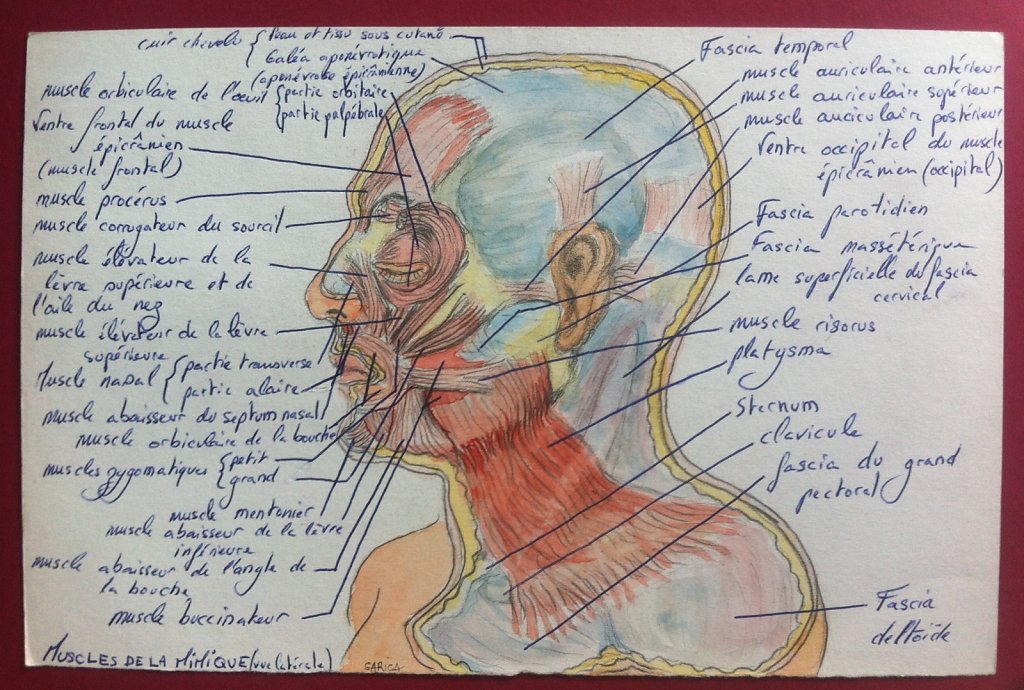 cuir chevelu { Peau et tissu sous cutané
Galéa aponévrotique
(aponévrose épicrânienne)
muscle orbiculaire de l'oeuil { partie orbitaire
partie palpébrale
Ventre frontal du muscle
épicrânien
(muscle frontal)
muscle procérus
muscle corrugateur du sourcil
muscle élévateur de la
lèvre supérieure et de
l'aile du nez
muscle élévateur de la lèvre
supérieure
Muscle nasal { partie transverse
partie alaire
muscle abaisseur du septum nasal
muscle orbiculaire de la bouche
muscles zygomatiques { petit
grand
muscle mentonier
muscle abaisseur de la lèvre
inférieure
muscle abaisseur de l'angle de
la bouche
muscle buccinateur
MUSCLES DE LA MIMIQUE (vue latérale)
GARICA
Fascia temporal
muscle auriculaire antérieur
muscle auriculaire supérieur
muscle auriculaire postérieur
Ventre occipital du muscle
épicrânien (occipital)
Fascia parotidien
Fascia massétérique
lame superficielle du fascia
cervical
muscle risorus
platysma
Sternum
clavicule
fascia du grand
pectoral
Fascia
deltoïde